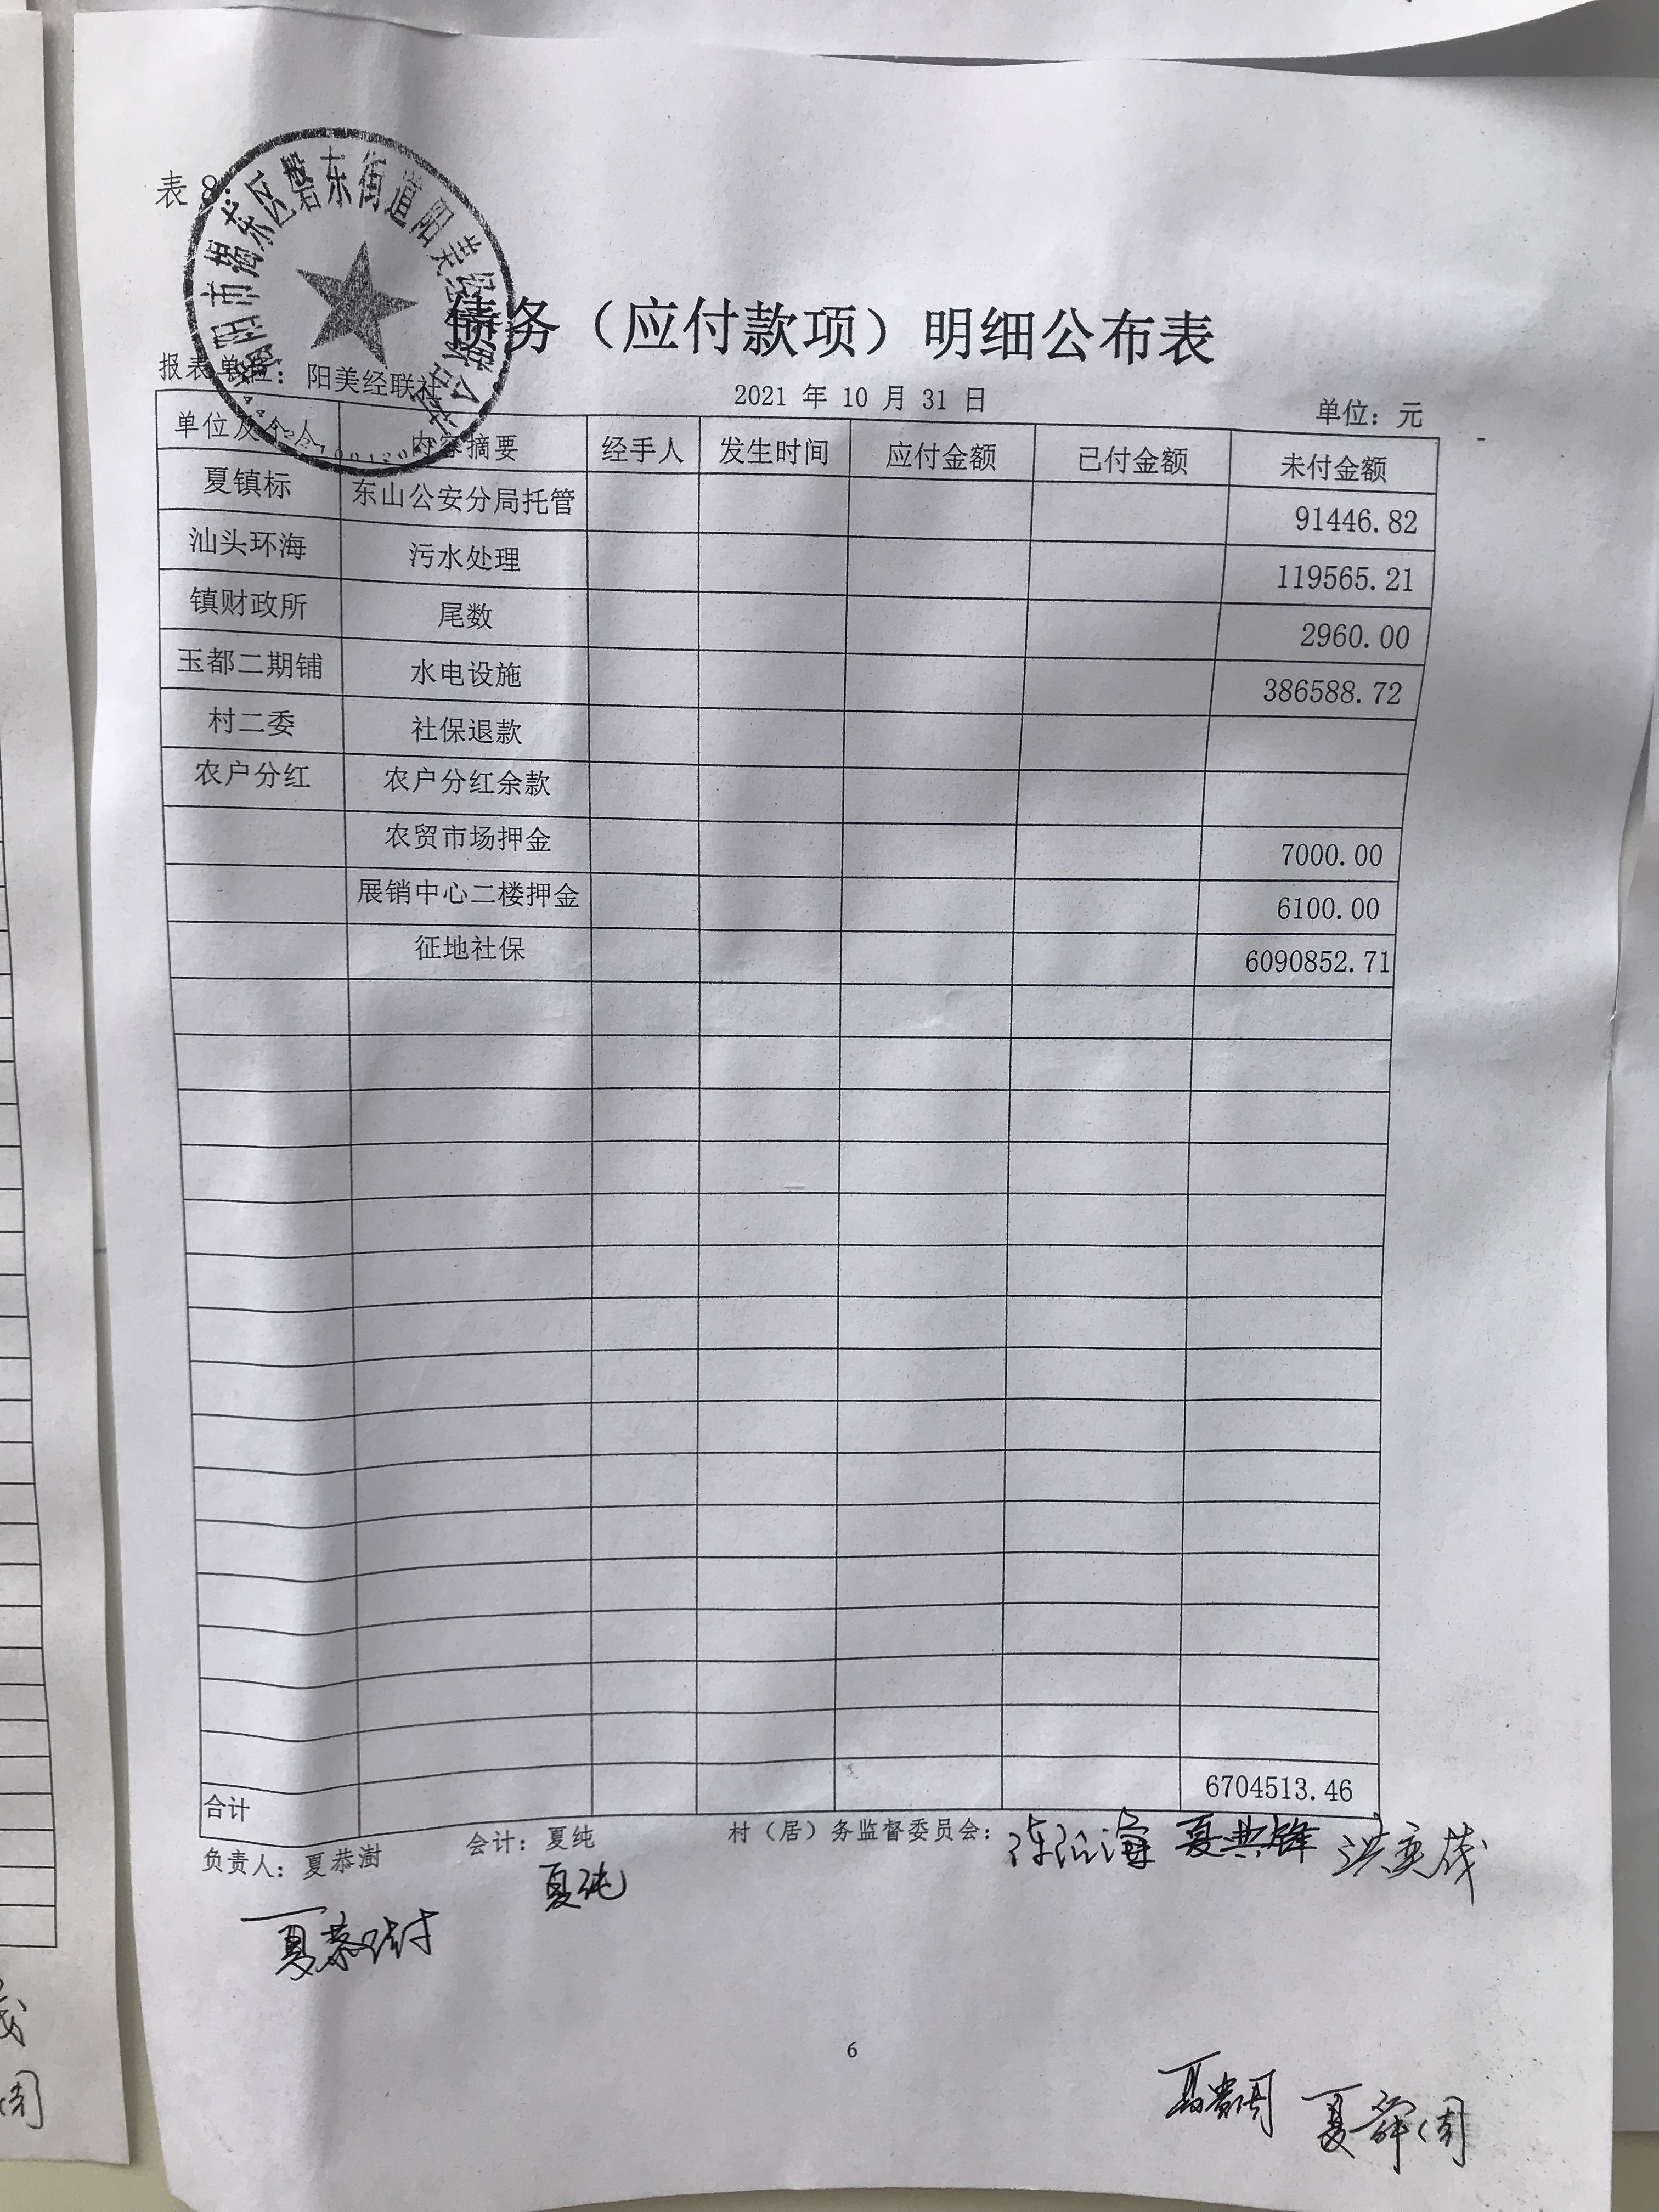 表 8：
揭阳市揭东区磐东街道阳美经济联合社
债务（应付款项）明细公布表
报表单位：阳美经联社
2021 年 10 月 31 日
单位：元
单位及个人 内容摘要 经手人 发生时间 应付金额 已付金额 未付金额
夏镇标 东山公安分局托管 91446.82
汕头环海 污水处理 119565.21
镇财政所 尾数 2960.00
玉都二期铺 水电设施 386588.72
村二委 社保退款
农户分红 农户分红余款
农贸市场押金 7000.00
展销中心二楼押金 6100.00
征地社保 6090852.71
合计 6704513.46
负责人：夏恭澍 会计：夏纯 村（居）务监督委员会：
夏典锋
夏纯
夏恭澍
6